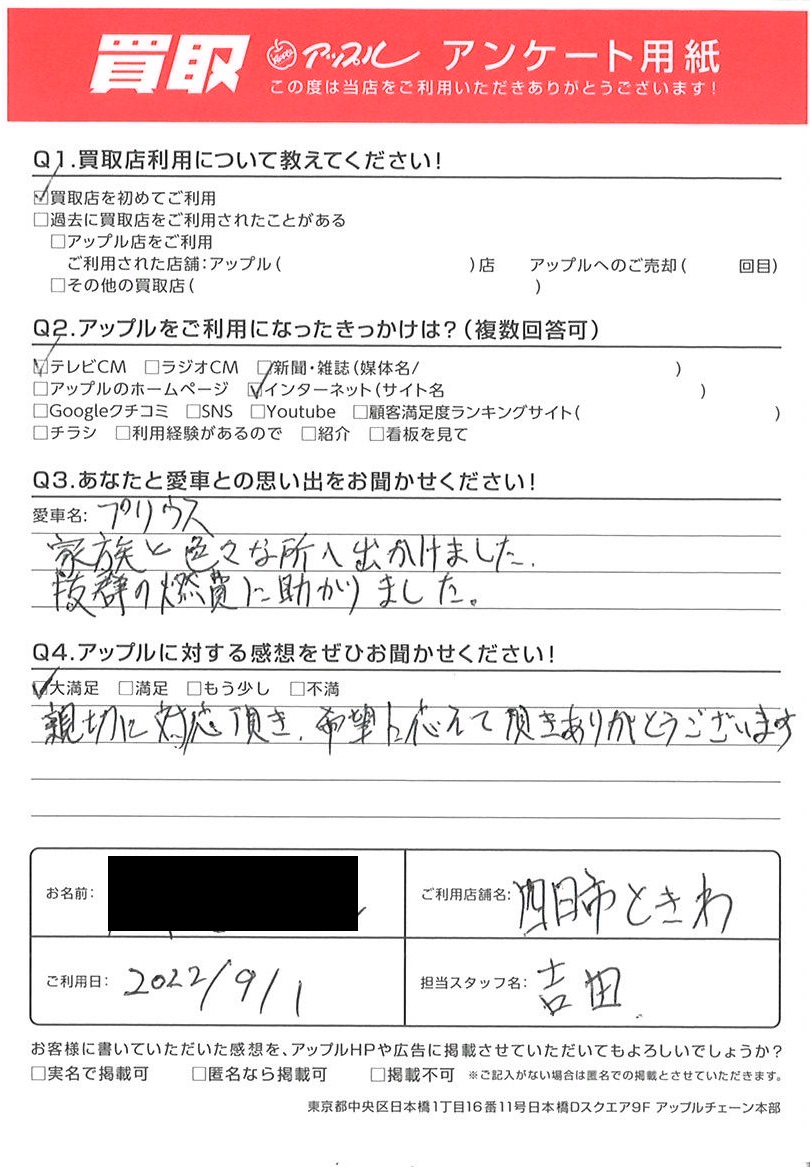 買取 アップル アンケート用紙
この度は当店をご利用いただきありがとうございます!
Q1.買取店利用について教えてください!
☑買取店を初めてご利用
□過去に買取店をご利用されたことがある
□アップル店をご利用
ご利用された店舗:アップル( )店 アップルへのご売却( 回目)
□その他の買取店( )
Q2.アップルをご利用になったきっかけは?(複数回答可)
☑テレビCM □ラジオCM □新聞・雑誌(媒体名/ )
□アップルのホームページ ☑インターネット(サイト名 )
□Googleクチコミ □SNS □Youtube □顧客満足度ランキングサイト( )
□チラシ □利用経験があるので □紹介 □看板を見て
Q3.あなたと愛車との思い出をお聞かせください!
愛車名: プリウス
家族と色々な所へ出かけました.
抜群の燃費に助かりました。
Q4.アップルに対する感想をぜひお聞かせください!
☑大満足 □満足 □もう少し □不満
親切に対応頂き、希望に応えて頂きありがとうございます
お名前: ご利用店舗名: 四日市ときわ
ご利用日: 2022/9/1 担当スタッフ名: 吉田
お客様に書いていただいた感想を、アップルHPや広告に掲載させていただいてもよろしいでしょうか?
□実名で掲載可 □匿名なら掲載可 □掲載不可 ※ご記入がない場合は匿名での掲載とさせていただきます。
東京都中央区日本橋1丁目16番11号日本橋Dスクエア9F アップルチェーン本部